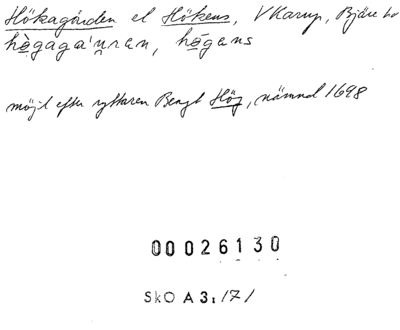 Hökagården el Hökens, V Karup, Bjäre hd
högaga'uran, högens
möjl efter ryttaren Bengt Hög, nämnd 1698
00026130
SkO A3: 171